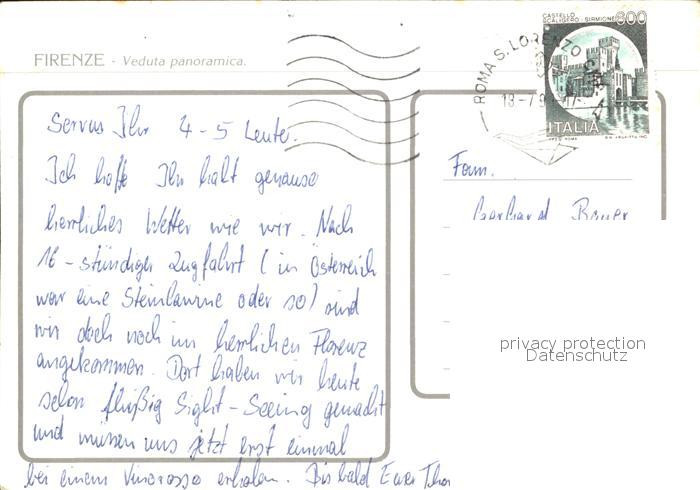 FIRENZE - Veduta panoramica.
CASTELLO
SCALIGERO - SIRMIONE
800
ROMA S. LORENZO
ITALIA
Servus Ihr 4-5 Leute.
Ich hoffe Ihr habt genauso
herrliches Wetter wie wir. Nach
16-stündiger Zugfahrt (in Österreich
war eine Steinlawine oder so) sind
wir doch noch im herrlichen Florenz
angekommen. Dort haben wir heute
schon fleißig Sight-Seeing gemacht
und müssen uns jetzt erst einmal
bei einem Vino rosso erholen. Bis bald Euer Tho
Fam.
Gerhard Bauer
privacy protection
Datenschutz